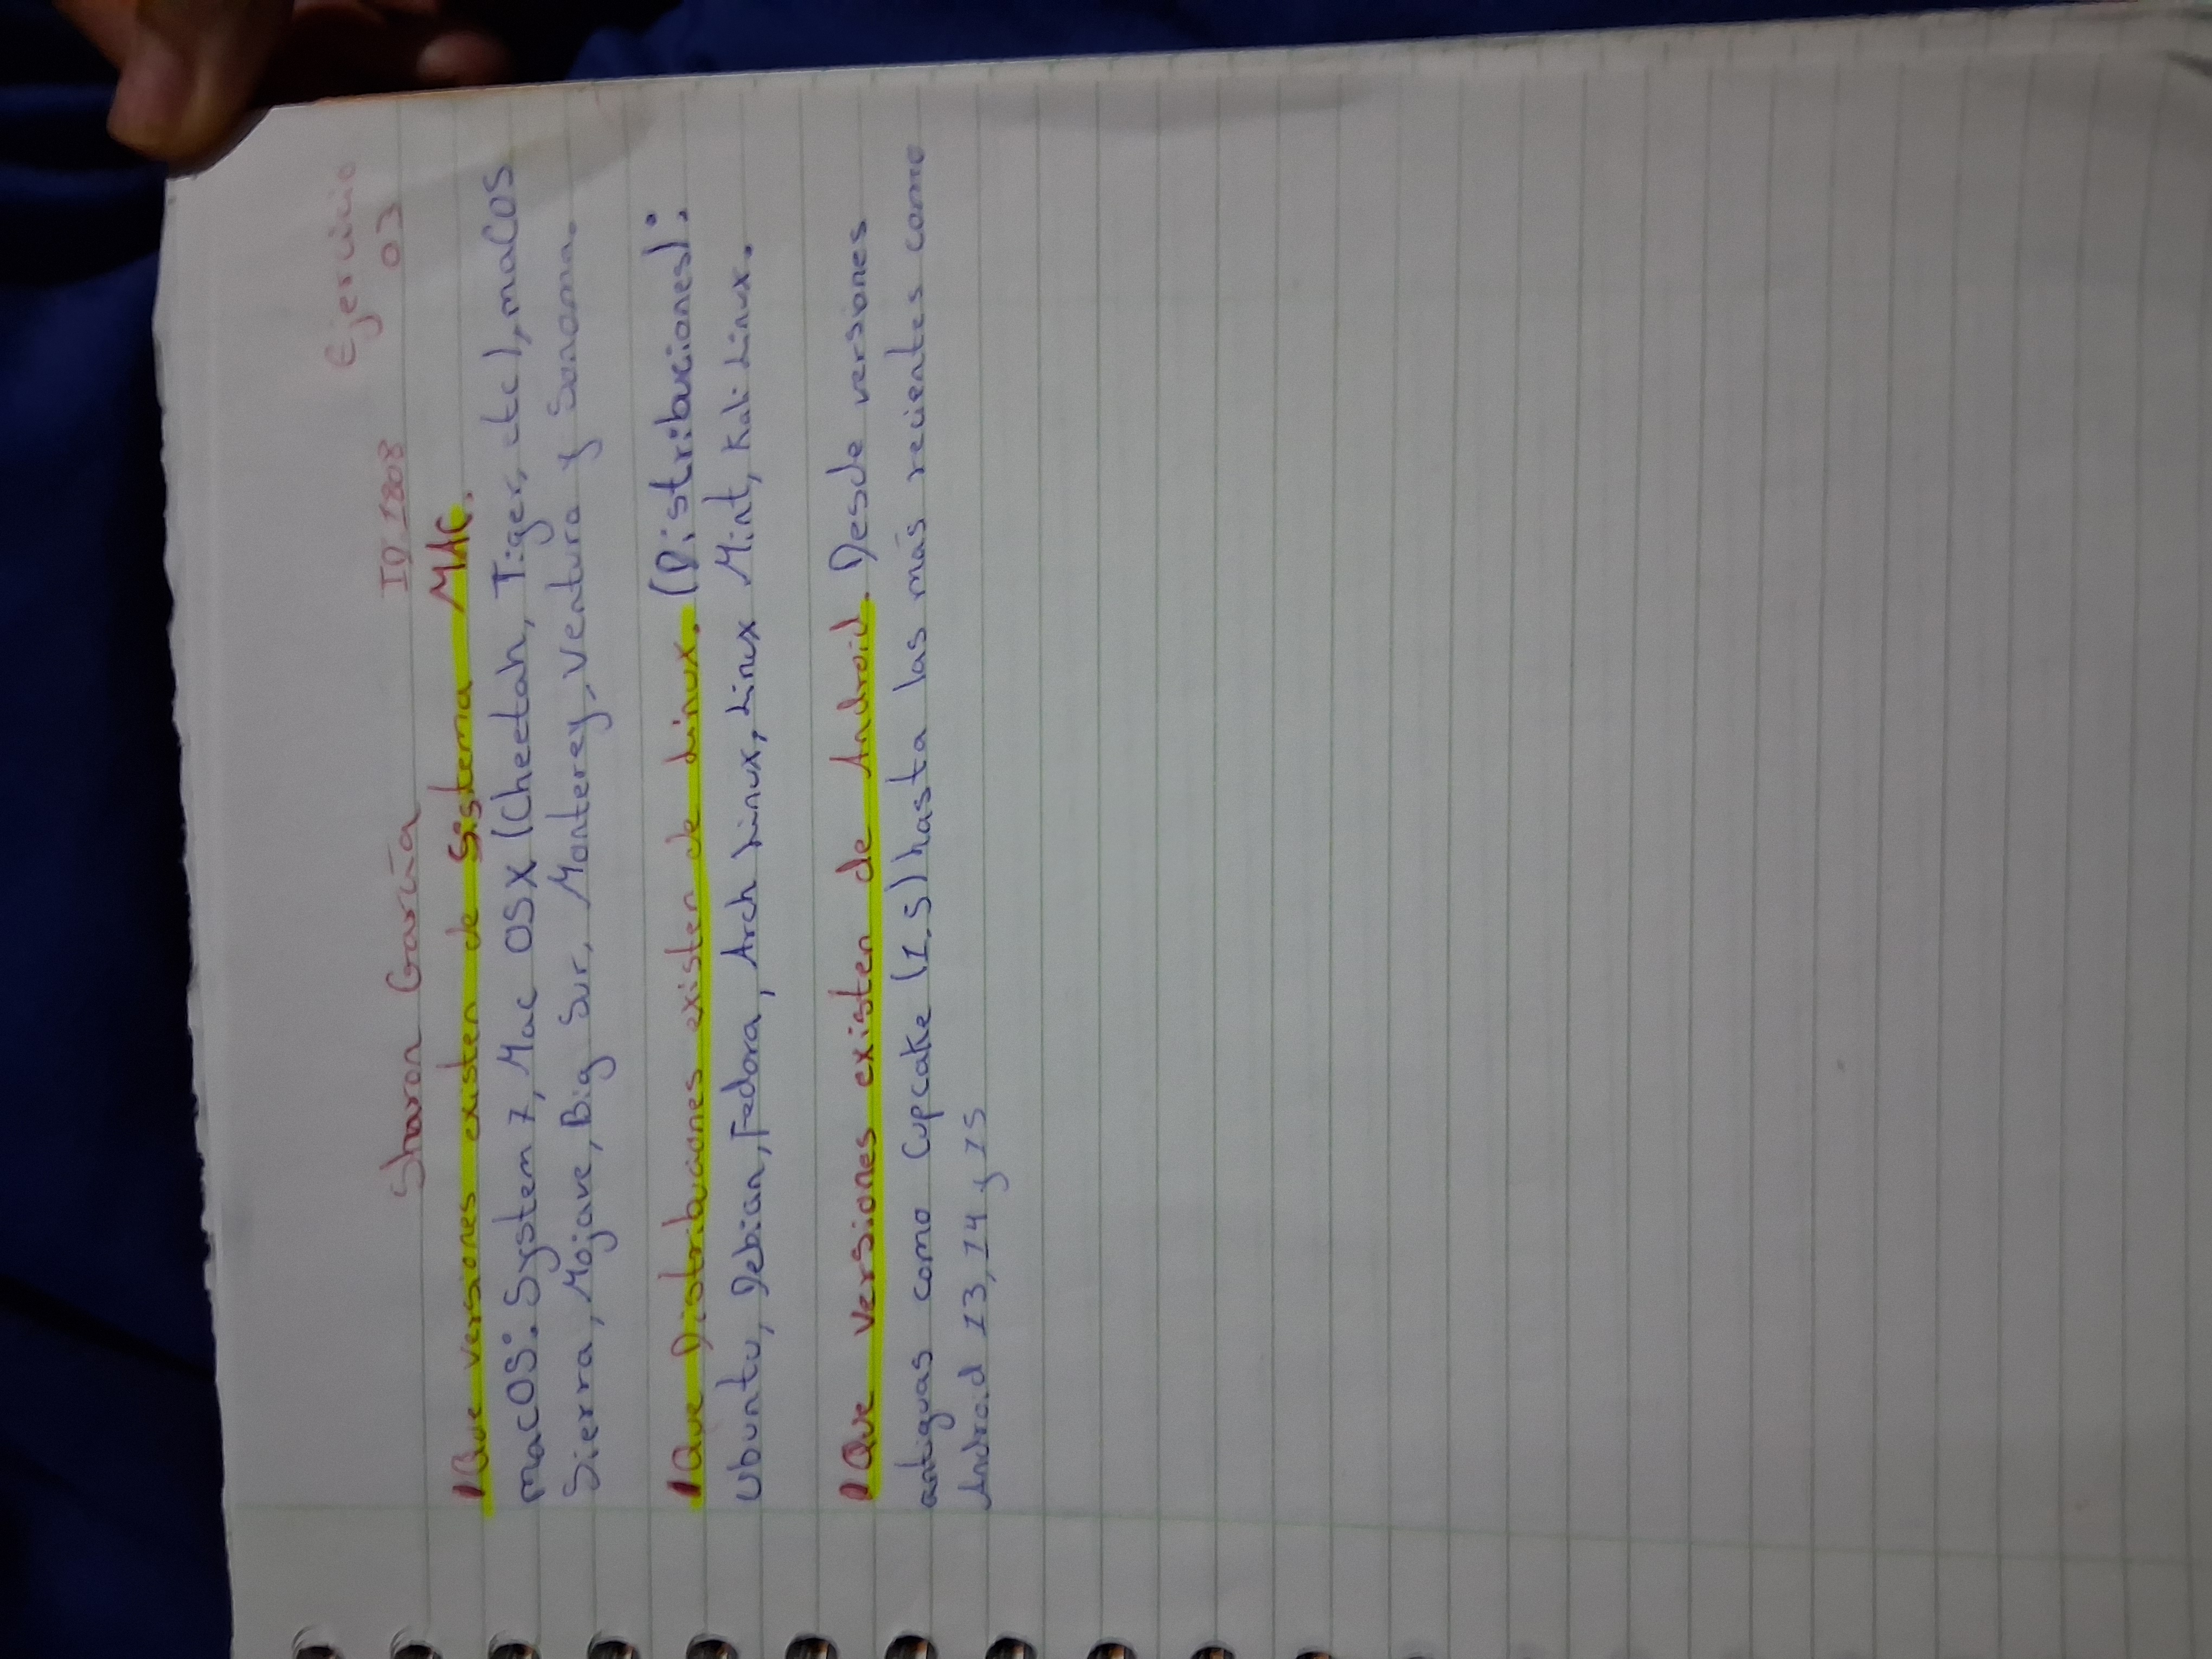 Ejercicio
Sharon García ID 1808 03
¿Que versiones existen de sistema MAC.
macOS: System 7, Mac OSX (Cheetah, Tiger, etc), macOS
Sierra, Mojave, Big Sur, Monterey, Ventura y Sonoma.
¿Que Distribuciones existen de Linux. (Distribuciones):
Ubuntu, Debian, Fedora, Arch Linux, Linux Mint, Kali Linux.
¿Que versiones existen de Android. Desde versiones
antiguas como Cupcake (1,5) hasta las más recientes como
Android 13, 14 y 15